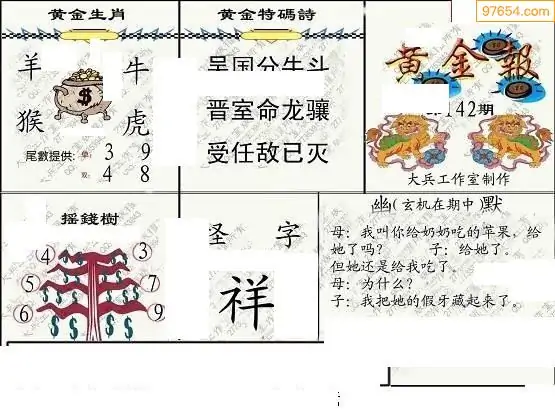 97654.com
黄金生肖
黄金特碼詩
黄金報
羊
牛
猴
虎
142期
尾數提供:
單:
3 9
双:
4 8
国分牛斗
晋室命龙骧
受任敌已灭
大兵工作室制作
摇錢樹
④ ③
⑤ ⑦
⑥ ⑨
怪 字
祥
幽(玄机在期中)默
母:我叫你给奶奶吃的苹果,给
她了吗? 子:给她了。
但她还是给我吃了。
母:为什么?
子:我把她的假牙藏起来了。